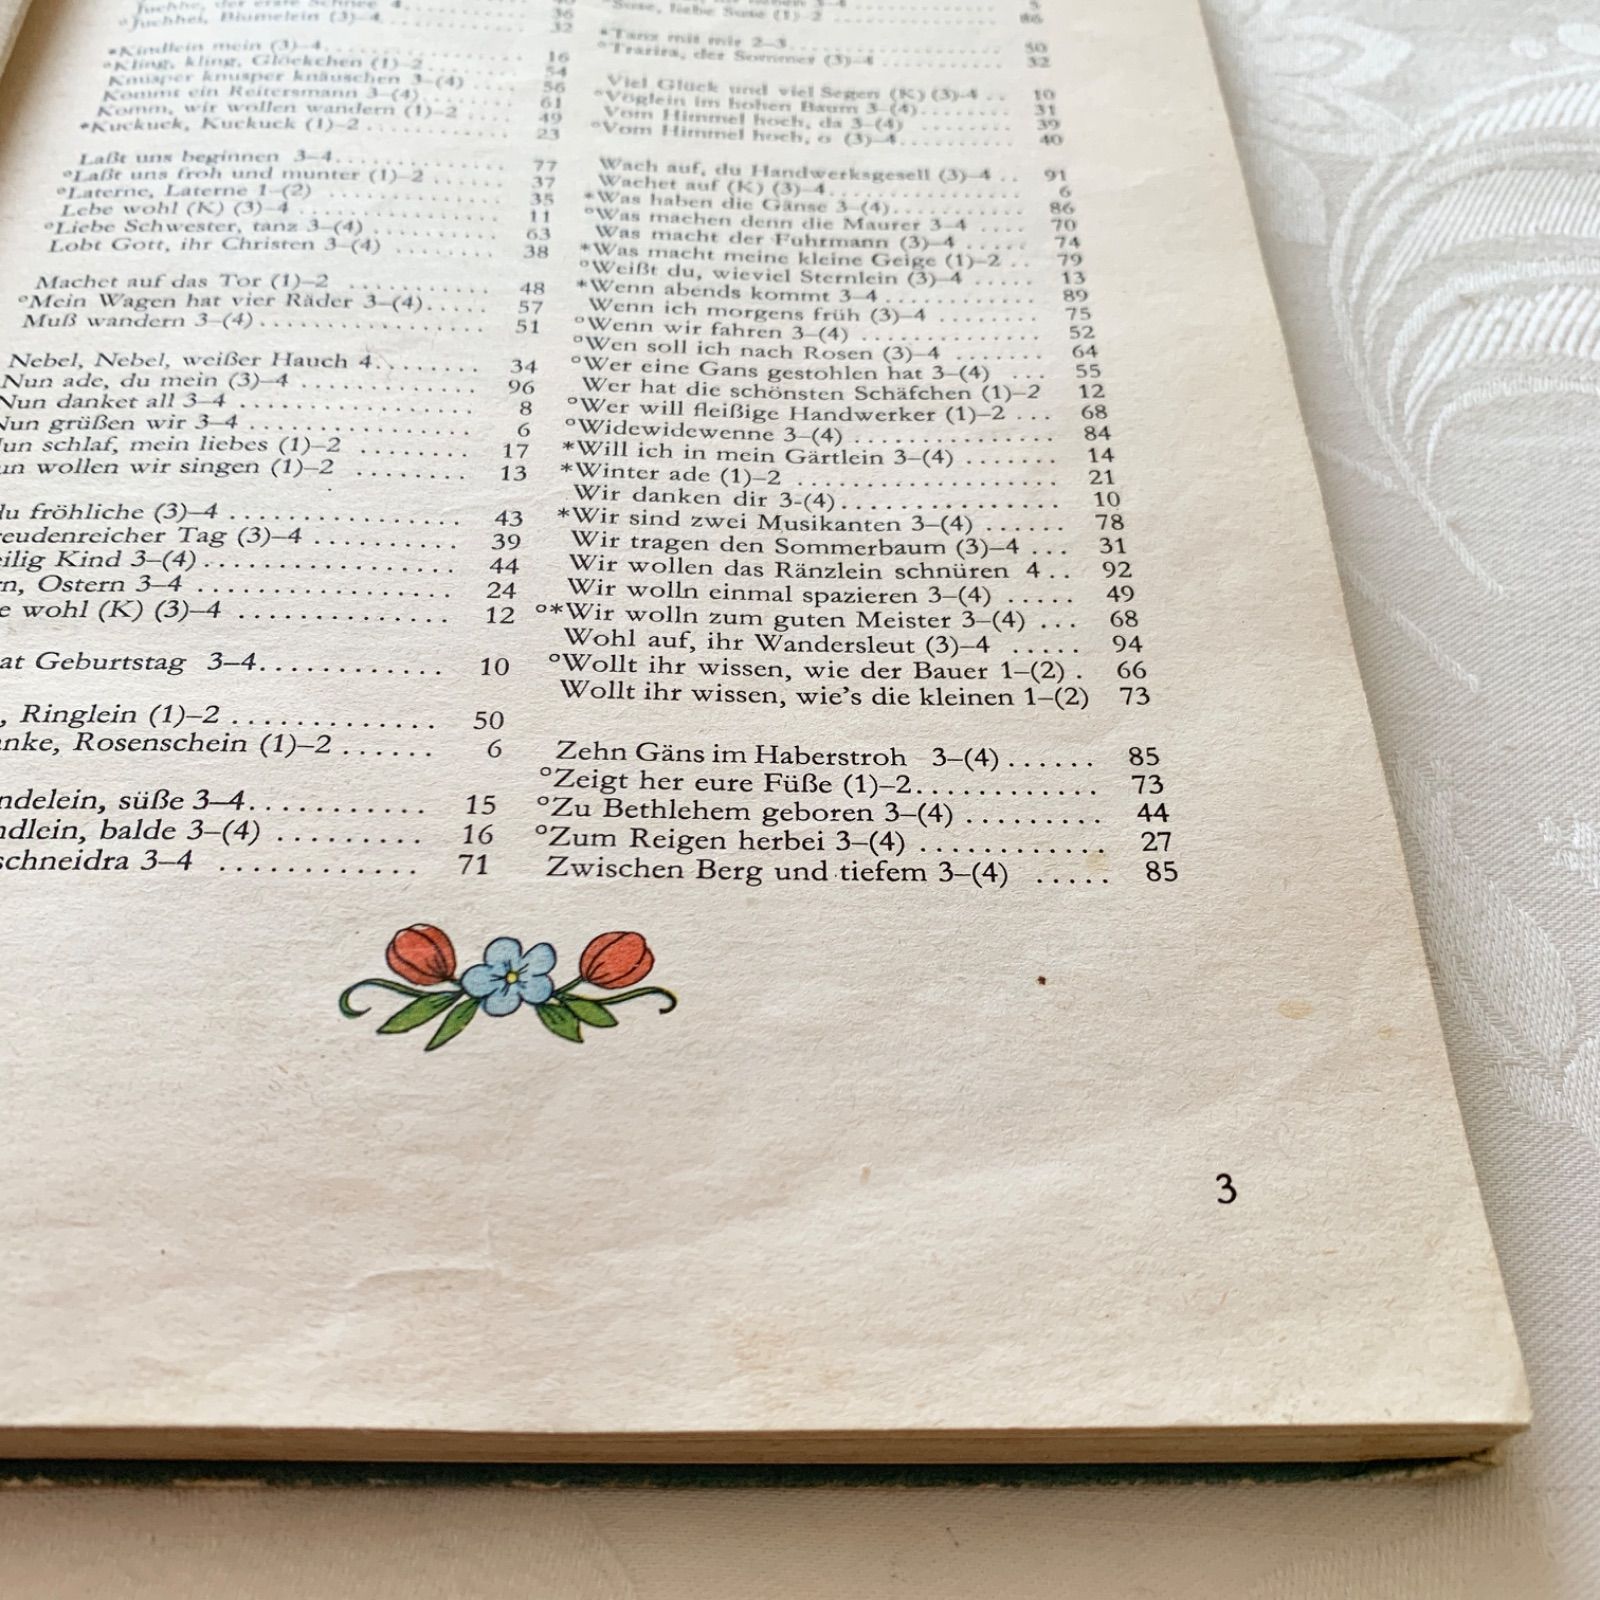 Juchhe, der erste Schnee 4
Juchhei, Blümelein (3)–4 36
32
*Kindlein mein (3)–4 16
°Kling, kling, Glöckchen (1)–2 54
Knusper knusper knäuschen 3–(4) 56
Kommt ein Reitersmann 3–(4) 61
Komm, wir wollen wandern (1)–2 49
*Kuckuck, Kuckuck (1)–2 23
Laßt uns beginnen 3–4 77
°Laßt uns froh und munter (1)–2 37
°Laterne, Laterne 1–(2) 35
Lebe wohl (K) (3)–4 11
°Liebe Schwester, tanz 3–(4) 63
Lobt Gott, ihr Christen 3–(4) 38
Machet auf das Tor (1)–2 48
°Mein Wagen hat vier Räder 3–(4) 57
Muß wandern 3–(4) 51
Nebel, Nebel, weißer Hauch 4 34
Nun ade, du mein (3)–4 96
Nun danket all 3–4 8
Nun grüßen wir 3–4 6
Nun schlaf, mein liebes (1)–2 17
un wollen wir singen (1)–2 13
du fröhliche (3)–4 43
reudenreicher Tag (3)–4 39
eilig Kind 3–(4) 44
rn, Ostern 3–4 24
e wohl (K) (3)–4 12
at Geburtstag 3–4 10
, Ringlein (1)–2 50
anke, Rosenschein (1)–2 6
ndelein, süße 3–4 15
ndlein, balde 3–(4) 16
schneidra 3–4 71
5
Suse, liebe Suse (1)–2 86
*Tanz mit mir 2–3 50
°Trarira, der Sommer (3)–4 32
Viel Glück und viel Segen (K) (3)-4 10
°Vöglein im hohen Baum 3–(4) 31
Vom Himmel hoch, da 3–(4) 39
°Vom Himmel hoch, o (3)–4 40
Wach auf, du Handwerksgesell (3)–4 91
Wachet auf (K) (3)–4 6
*Was haben die Gänse 3–(4) 86
°Was machen denn die Maurer 3–4 70
Was macht der Fuhrmann (3)–4 74
*Was macht meine kleine Geige (1)–2 79
°Weißt du, wieviel Sternlein (3)–4 13
*Wenn abends kommt 3–4 89
Wenn ich morgens früh (3)–4 75
°Wenn wir fahren 3–(4) 52
°Wen soll ich nach Rosen (3)–4 64
°Wer eine Gans gestohlen hat 3–(4) 55
Wer hat die schönsten Schäfchen (1)–2 12
°Wer will fleißige Handwerker (1)–2 68
°Widewidewenne 3–(4) 84
*Will ich in mein Gärtlein 3–(4) 14
*Winter ade (1)–2 21
Wir danken dir 3-(4) 10
*Wir sind zwei Musikanten 3–(4) 78
Wir tragen den Sommerbaum (3)–4 31
Wir wollen das Ränzlein schnüren 4 92
Wir wolln einmal spazieren 3–(4) 49
°*Wir wolln zum guten Meister 3–(4) 68
Wohl auf, ihr Wandersleut (3)–4 94
°Wollt ihr wissen, wie der Bauer 1–(2) 66
Wollt ihr wissen, wie's die kleinen 1–(2) 73
Zehn Gäns im Haberstroh 3–(4) 85
°Zeigt her eure Füße (1)–2 73
°Zu Bethlehem geboren 3–(4) 44
°Zum Reigen herbei 3–(4) 27
Zwischen Berg und tiefem 3–(4) 85
3